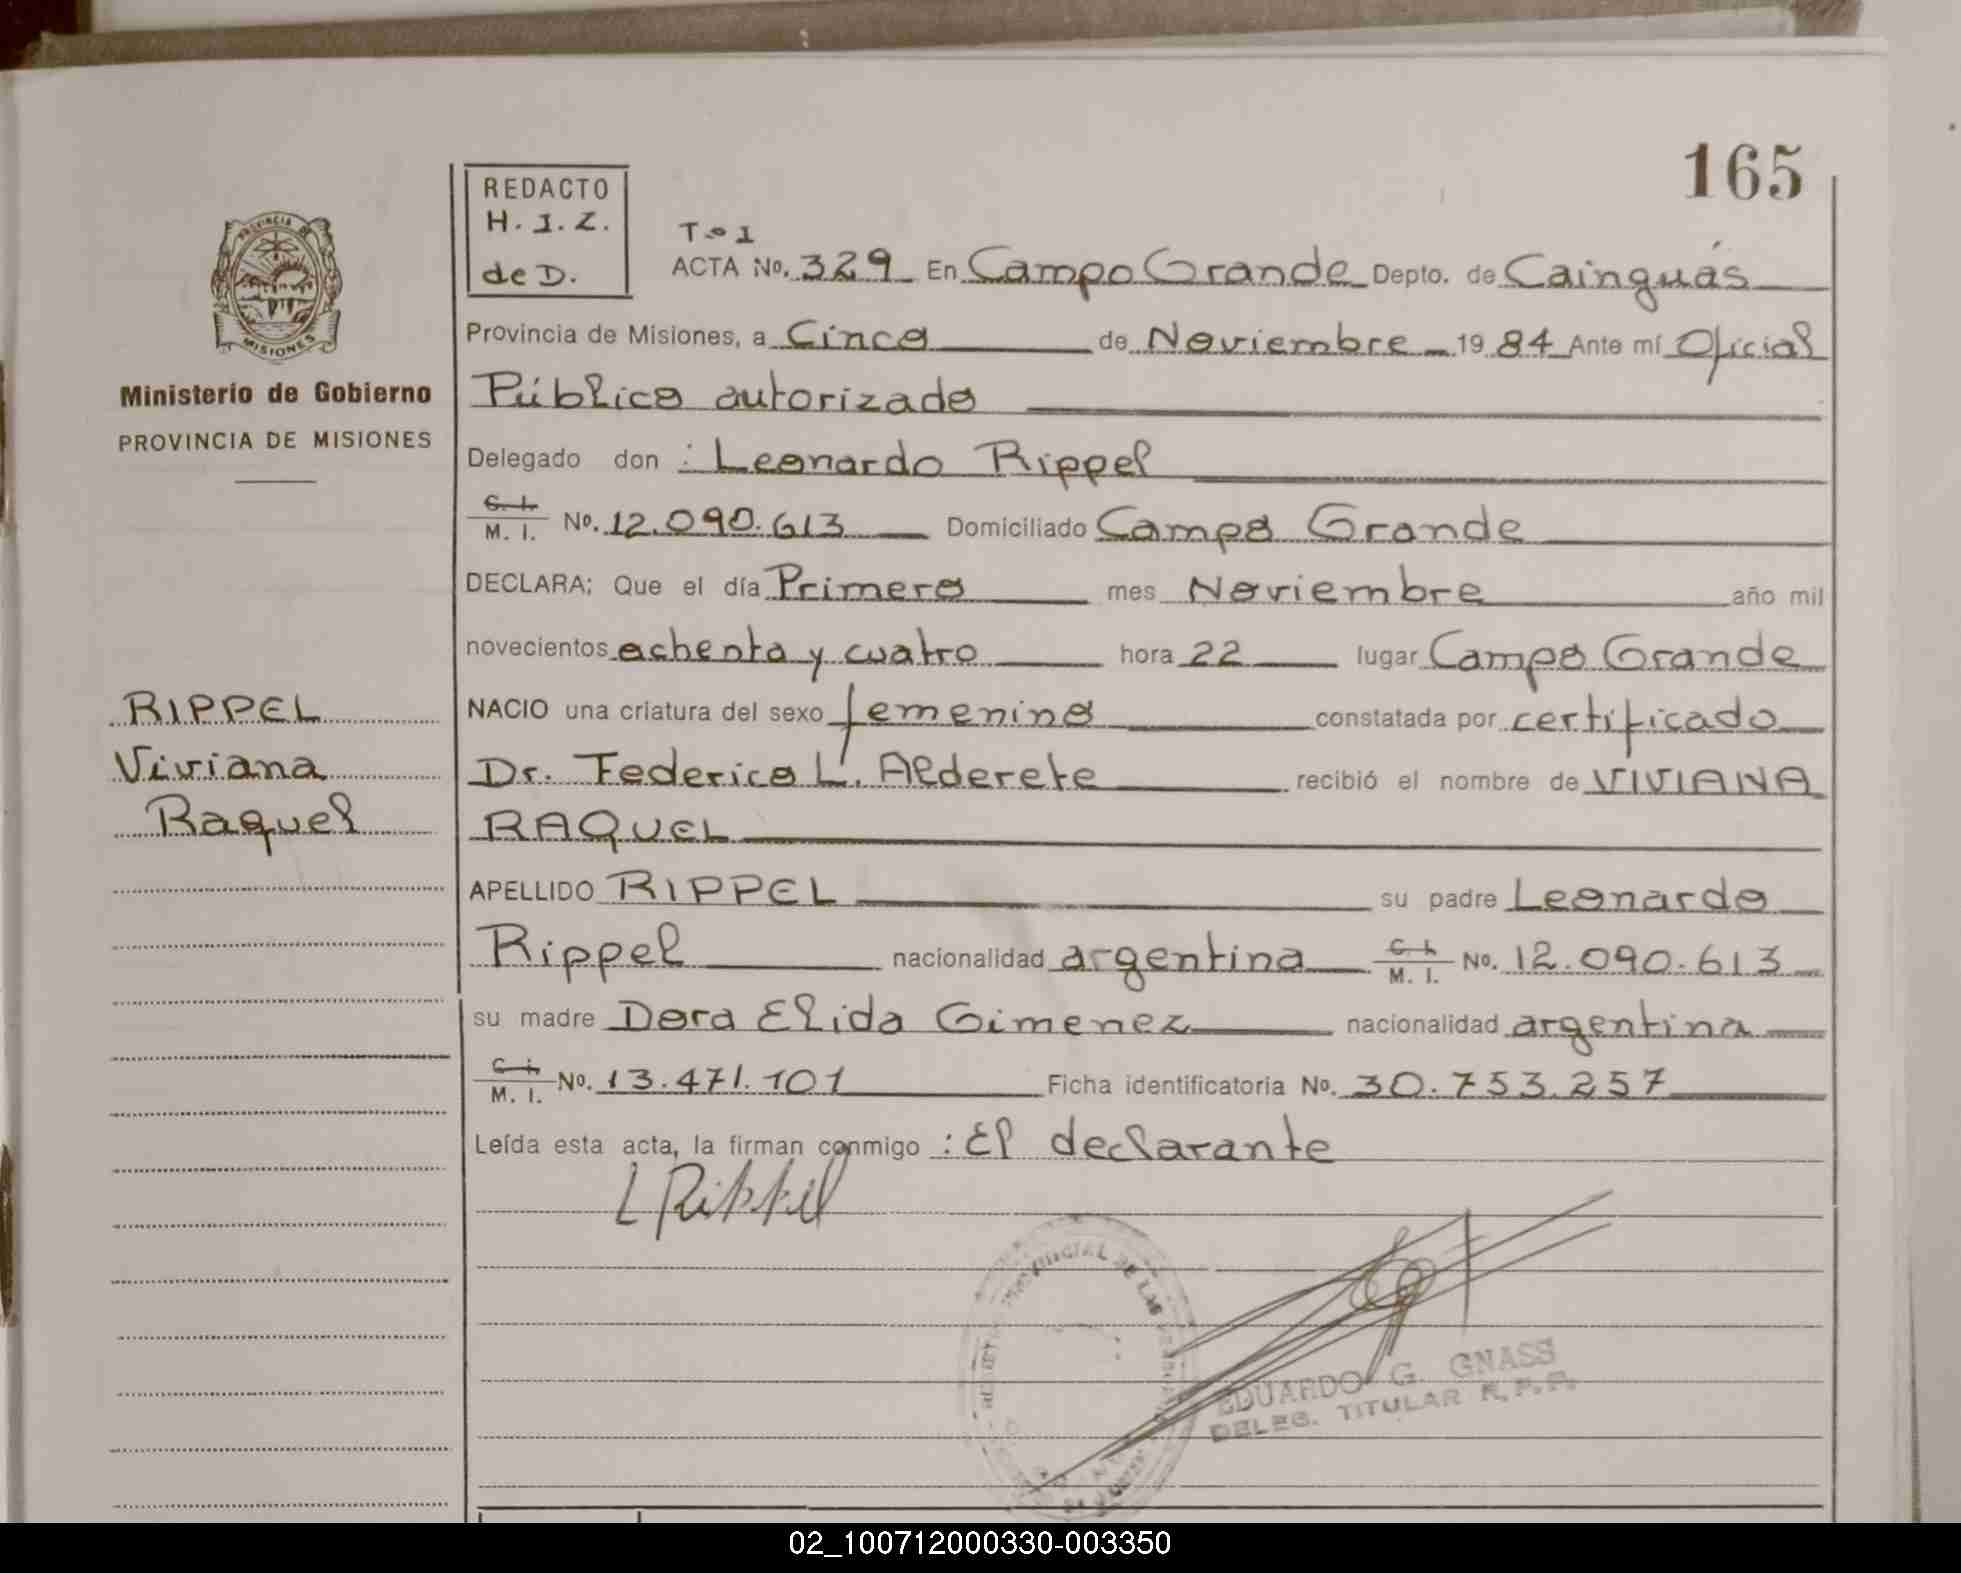 165
REDACTO
H. J. Z.
de D.
PROVINCIA DE
MISIONES
Ministerio de Gobierno
PROVINCIA DE MISIONES
RIPPEL
Viviana
Raquel
Tº 1
ACTA Nº. 329 En Campo Grande Depto. de Cainguás
Provincia de Misiones, a Cinco de Noviembre 1984 Ante mí Oficial
Público autorizado
Delegado don : Leonardo Rippel
C. I. M. I. Nº. 12.090.613 Domiciliado Campo Grande
DECLARA: Que el día Primero mes Noviembre año mil
novecientos ochenta y cuatro hora 22 lugar Campo Grande
NACIO una criatura del sexo femenino constatada por certificado
Dr. Federico L. Alderete recibió el nombre de VIVIANA
RAQUEL
APELLIDO RIPPEL su padre Leonardo
Rippel nacionalidad argentina C. I. M. I. Nº. 12.090.613
su madre Dora Elida Gimenez nacionalidad argentina
C. I. M. I. Nº. 13.471.101 Ficha identificatoria Nº. 30.753.257
Leída esta acta, la firman conmigo : El declarante
L Rippel
PROVINCIAL DE LAS
EDUARDO G. GNASS
DELEG. TITULAR R.P.P.
02_100712000330-003350